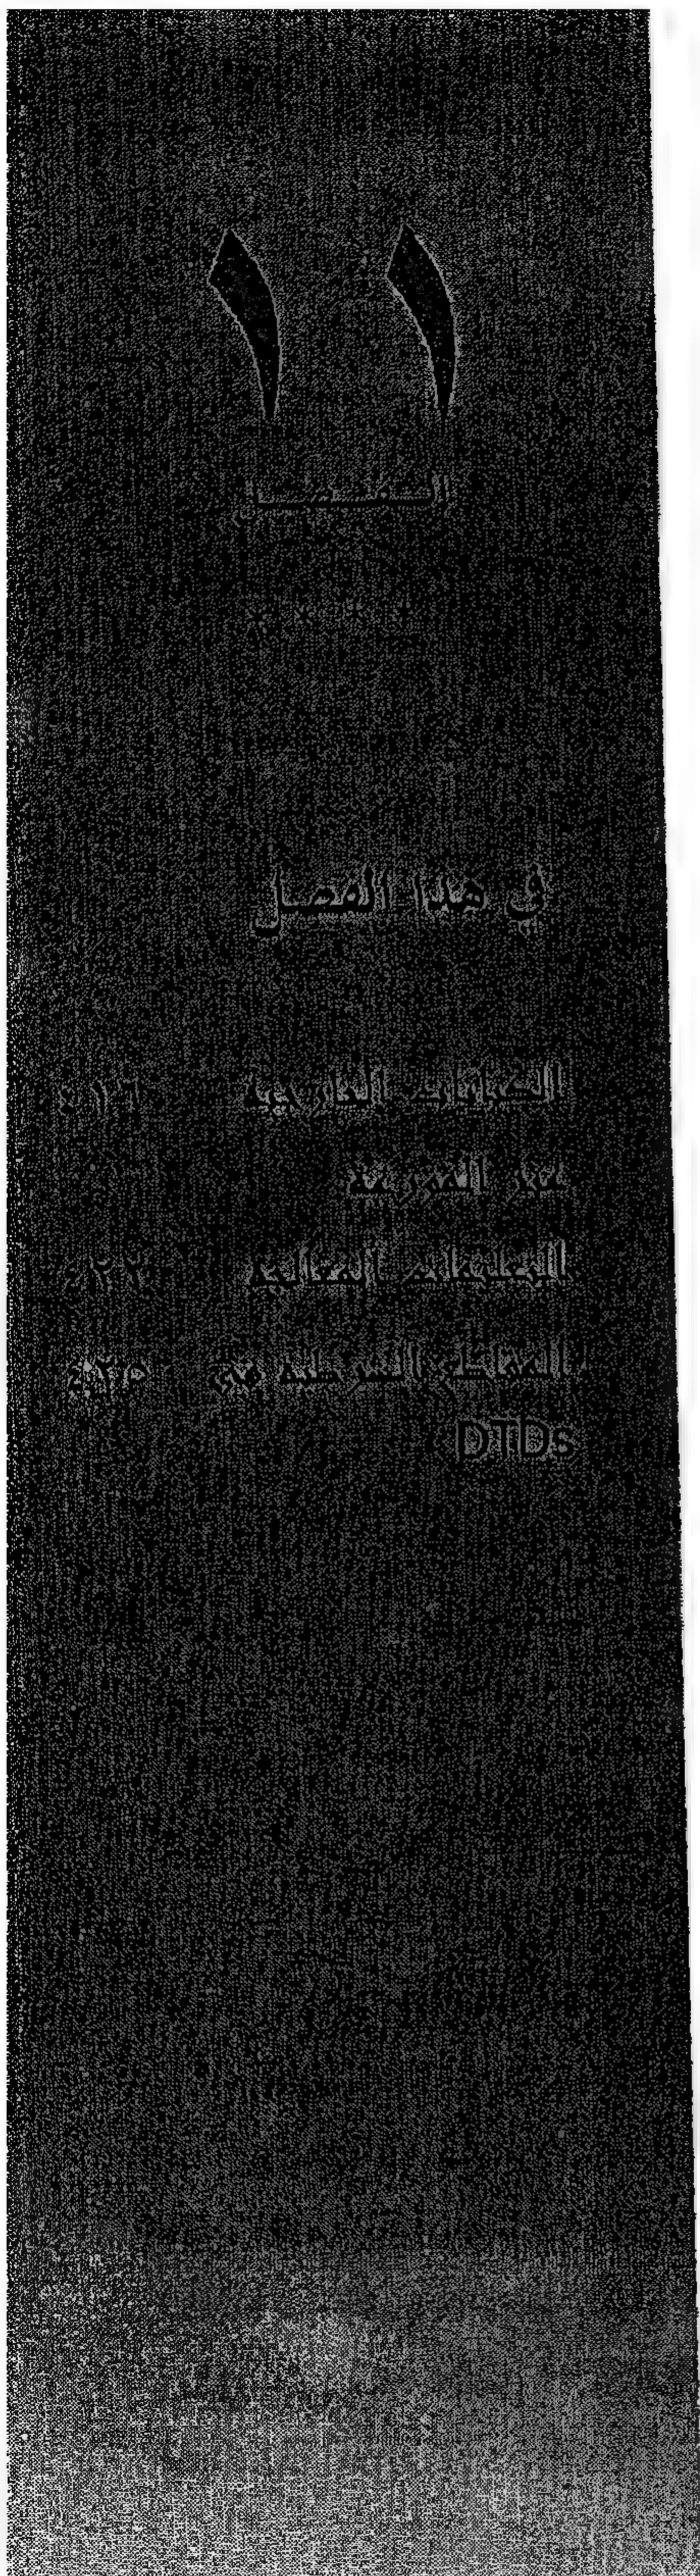 ١١
الفصل
* * * *
في هذا الفصل
الكيانات الخارجية ٤١٦
غير المعربة
التعليمات المعالجة ٤٢٢
المقاطع الشرطية في ٤٢٥
DTDs